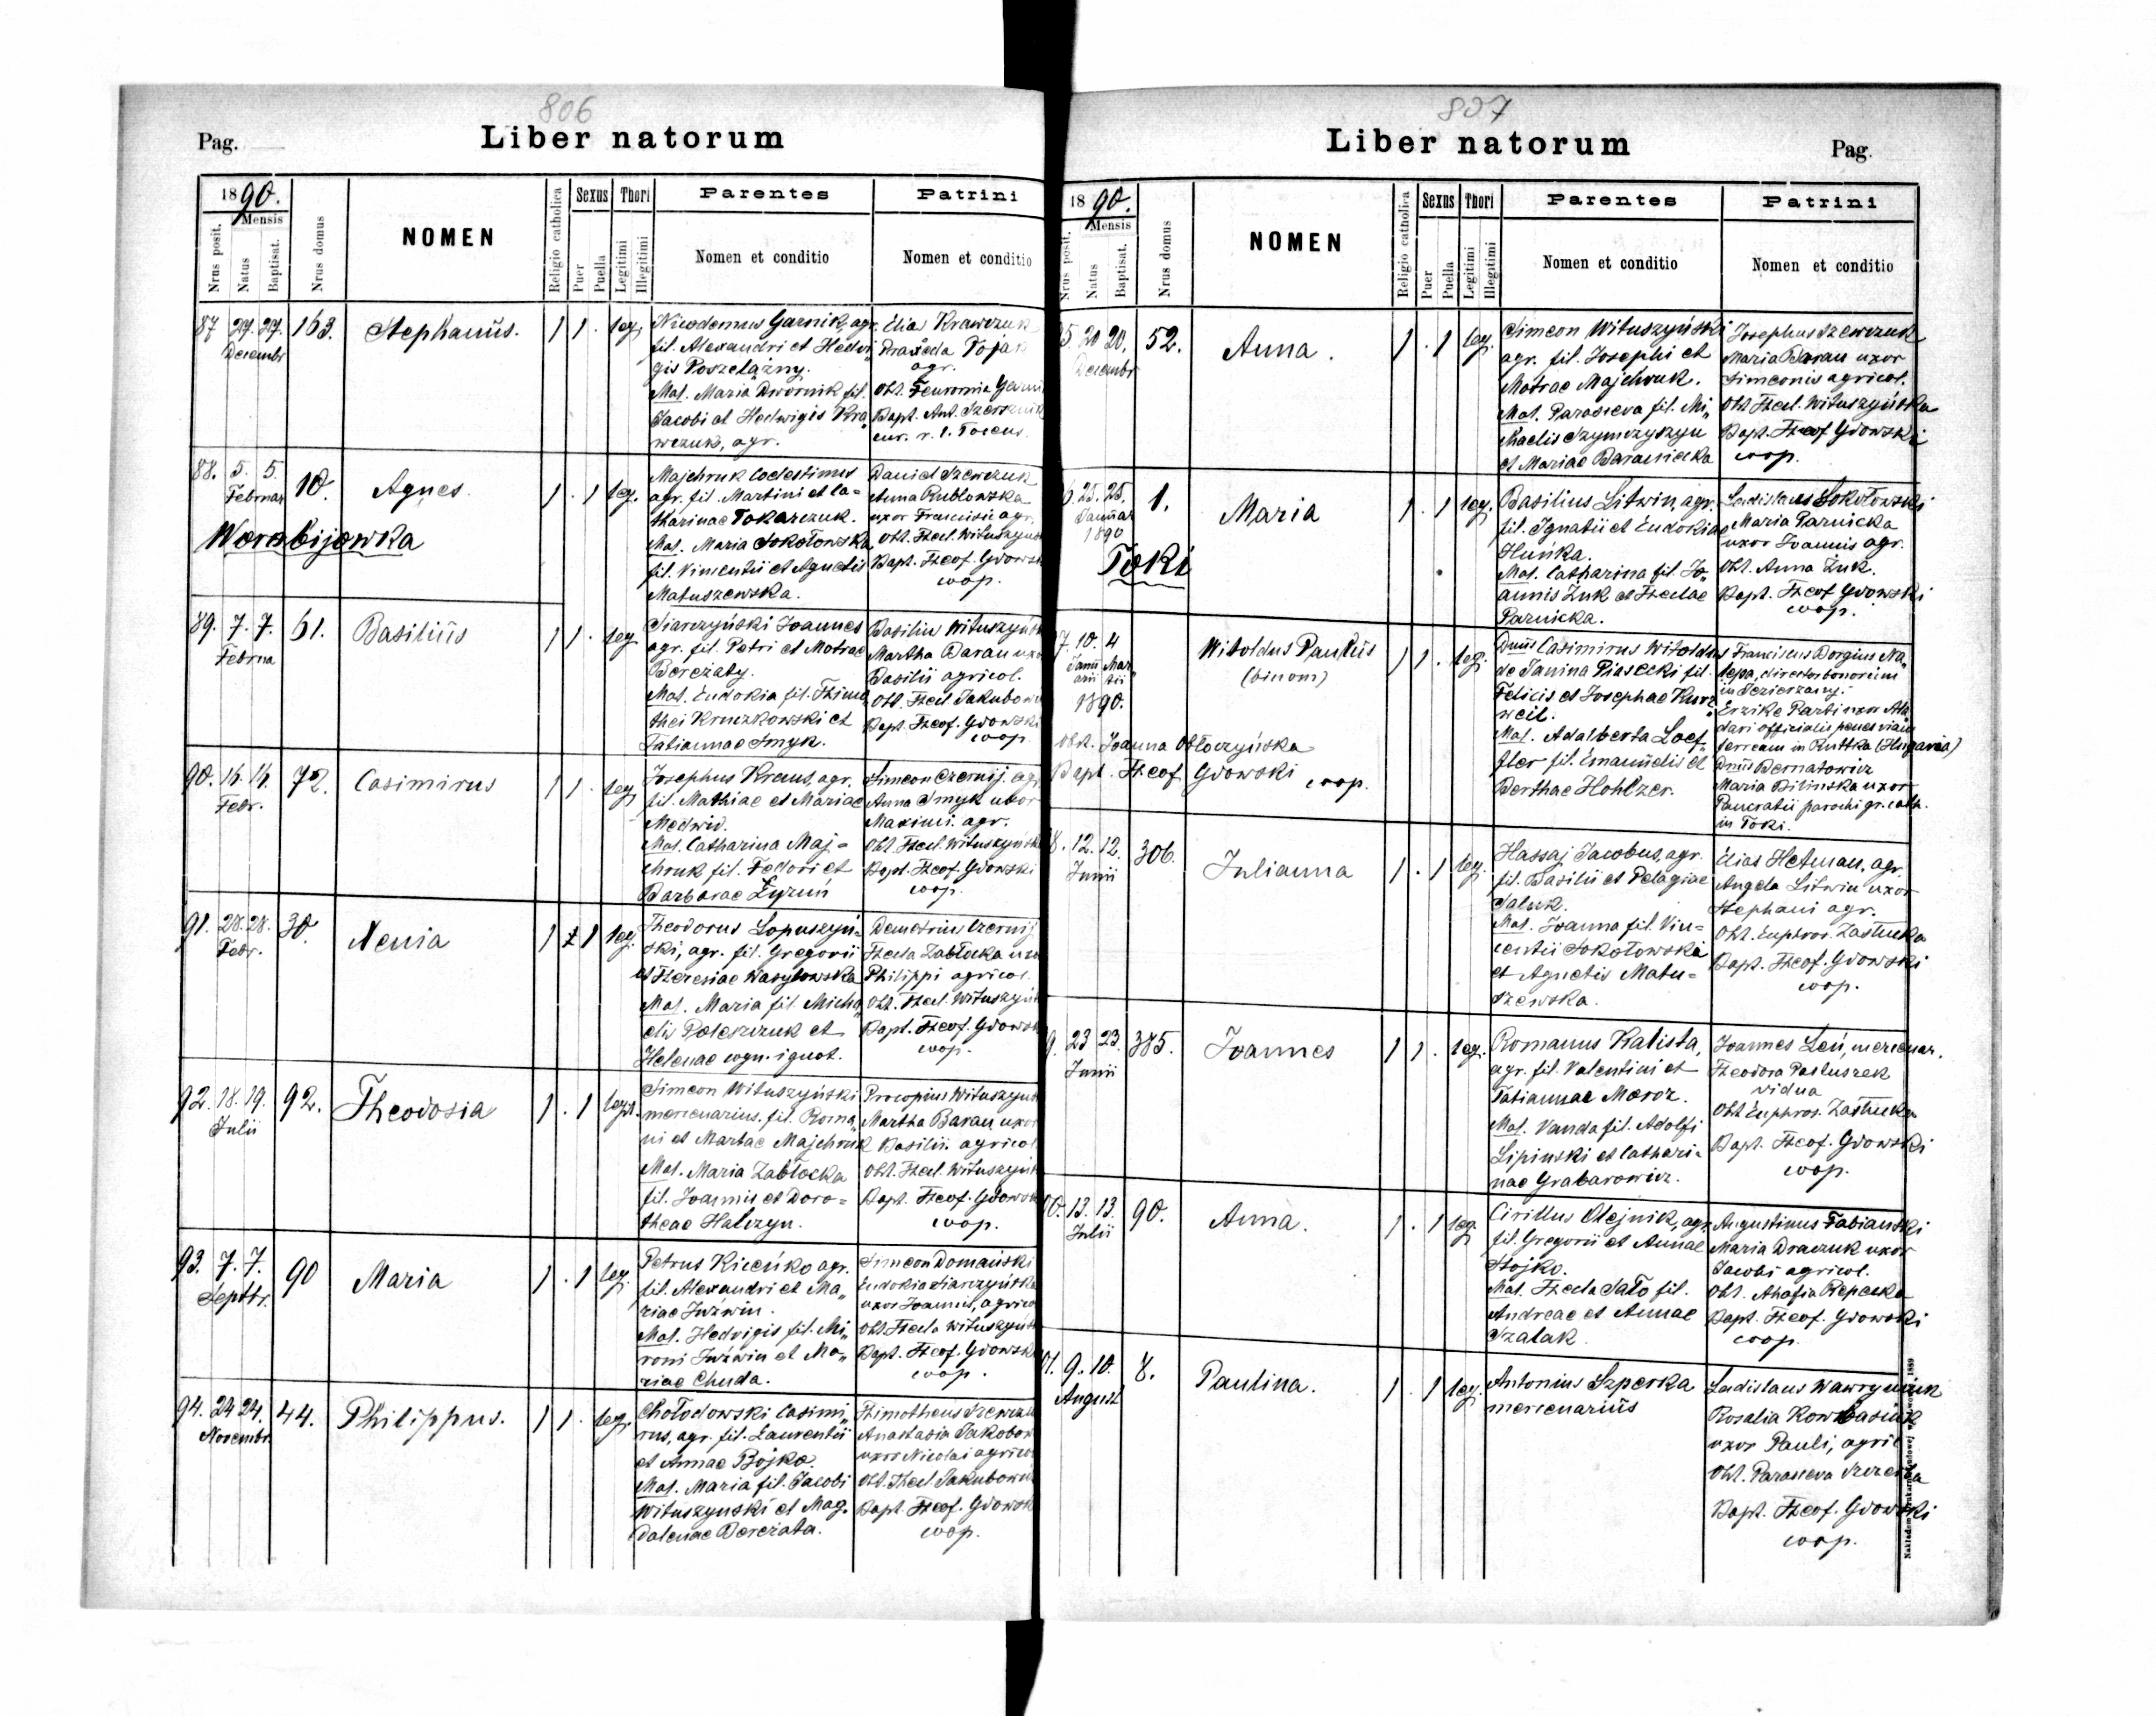 806
Pag.
Liber natorum
1890.
Mensis
Nrus posit.
Natus
Baptisat.
Nrus domus
NOMEN
Religio catholica
Sexus
Puer
Puella
Thori
Legitimi
Illegitimi
Parentes
Nomen et conditio
Patrini
Nomen et conditio
87 27. 27. 163. Stephanus. 1 1 . leg.
Decembr
Nicodemus Garnik, agr.
fil. Alexandri et Hedvi„
gis Poszelążny.
Mat. Maria Dwornik fil.
Jacobi et Hedwigis Kra„
wczuk, agr.
Elia Krawczuk
Praxeda Pojak
agr.
Obt. Feuronia
Bapt. Ant.
cur. r. l. Tocens.
88. 5. 5. 10. Agnes. 1 . 1 leg.
Februar
Worobijowka
Majchruk Coelestinus
agr. fil. Martini et Ca=
tharinae Tokarczuk.
Mat. Maria Sokołowska
fil. Vincentii et Agnetis
Matuszewska.
Daniel Szewczuk
Anna Rublowska
uxor Francisci agr.
Obt. Thecl. Wituszyńs
Bapt. Theof. Gdowsk
coop.
89. 7. 7. 61. Basilius 1 1 . leg
Februa
Siarczyński Joannes
agr. fil. Petri et Motrae
Bereżaty.
Mat. Eudokia fil. Thimo„
thei Kruczkowski et
Tatiannae Smyk.
Basiliu Wituszyńsk
Martha Baran uxo
Basilii agricol.
Obt. Thecl. Jakubow
Bapt. Theof. Gdowski
coop.
90. 16. 16. 72. Casimirus 1 1 . leg
Febr.
Josephus Kraus, agr.
fil. Mathiae et Mariae
Medwid.
Mat. Catharina Maj=
chruk fil. Fedori et
Barbarae Łyzuń
Simeon Czernij. agr.
Anna Smyk uxor
Maximi. agr.
Obt. Thecl. Wituszyńsk
Bapt. Theof. Gdowski
coop.
91. 28. 28. 30. Xenia 1 1 leg.
Febr.
Theodorus Lopuszyń=
ski, agr. fil. Gregorii
et Theresiae Wasylowska
Mat. Maria fil. Micha„
elis Poleszczuk et
Helenae cogn. ignot.
Demetrius Czernij
Thecla Zabłocka uxo
Philippi agricol.
Obt. Thecl. Wituszyńs
Bapt. Theof. Gdowsk
coop.
92. 18. 19. 92. Theodosia 1 . 1 legt.
Julii
Simeon Wituszyński
mercenarius, fil. Roma„
ni et Martae Majchruk
Mat. Maria Zabłocka
fil. Joannis et Doro=
theae Halczyn.
Procopius Wituszyńs
Martha Baran uxor
Basilii agricol
Obt. Thecl. Wituszyńs
Bapt. Theof. Gdowsk
coop.
93. 7. 7. 90 Maria 1 . 1 leg.
Septbr.
Petrus Kiceńko agr.
fil. Alexandri et Ma„
riae Juźwin.
Mat. Hedvigis fil. Mi„
roni Juźwin et Ma„
riae Chuda.
Simeon Domański
Eudokia Siarczyńska
uxor Joannis, agrico
Obt. Thecla Wituszyńs
Bapt. Theof. Gdowsk
coop.
94. 24 24. 44. Philippus. 1 1 . leg.
Novembr.
Chołodowski Casimi„
rus, agr. fil. Laurentii
et Annae Bojko.
Mat. Maria fil. Jacobi
Wituszynski et Mag.
dalenae Bereżata.
Thimotheus Szewczu
Anastasia Jakobow
uxor Nicolai agrico
Obt. Thecl. Jakubow
Bapt. Theof. Gdowsk
coop.
807
Liber natorum
Pag.
1890.
Mensis
Nrus posit.
Natus
Baptisat.
Nrus domus
NOMEN
Religio catholica
Sexus
Puer
Puella
Thori
Legitimi
Illegitimi
Parentes
Nomen et conditio
Patrini
Nomen et conditio
5. 20 20. 52. Anna. 1 . 1 leg.
Decembr
Simeon Wituszyński
agr. fil. Josephi et
Motrae Majchruk.
Mat. Parasceva fil. Mi„
chaelis Szymczyszyn
et Mariae Baraniecka
Josephus Szewczuk
Maria Baran uxor
Simeonis agricol.
Obt. Thecl. Wituszyńska
Bapt. Theof Gdowski
coop.
6. 25. 25. 1. Maria 1 . 1 leg.
Januar
1890
Toki
Basilius Litwin, agr.
fil. Ignatii et Eudokiae
Huńka.
Mat. Catharina fil. Jo„
annis Żuk et Theclae
Parnicka.
Ladislaus Sokołowski
Maria Parnicka
uxor Joannis agr.
Obt. Anna Żuk.
Bapt. Theof Gdowski
coop.
7. 10. 4 Witoldus Paulus 1 1 . leg.
Janu Mar
arii tii
1890.
(binom)
Obst. Joanna Obłoczyńska
Bapt. Theof Gdowski coop.
Dnus Casimirus Witoldus
de Janina Piasecki fil.
Felicis et Josephae Kurz„
weil.
Mat. Adalberta Loef„
fler fil. Emanuelis et
Berthae Hohlzer.
Franciscus Borgius Na„
łepa, director bonorum
in Jezierzany.
Erzike Parti uxor Ala
dari officialis penes viam
ferream in Ruttka (Hugaria)
Dnus Bernatowicz
Maria Bilinska uxor
Pancratii parochi gr. cath.
in Toki.
8. 12. 12. 306. Julianna 1 . 1 leg.
Junii
Hassaj Jacobus, agr.
fil. Basilii et Pelagiae
Saluk.
Mat. Joanna fil. Vin=
centii Sokołowski
et Agnetis Matu=
szewska.
Elias Hetman, agr.
Angela Litwin uxor
Stephani agr.
Obt. Euphros. Zastucka
Bapt. Theof. Gdowski
coop.
9. 23 23. 385. Joannes 1 1 . leg.
Junii
Romanus Kalista,
agr. fil. Valentini et
Tatiannae Moroz.
Mat. Vanda fil. Adolfi
Lipinski et Cathari=
nae Grabarowicz.
Joannes Leń, mercenar.
Theodora Pastuszek
vidua
Obt Euphros. Zastucka
Bapt. Theof. Gdowski
coop.
00. 13. 13. 90. Anna. 1 . 1 leg
Julii
Cirillus Olejnik, agr.
fil. Gregorii et Annae
Stojko.
Mat. Thecla Sało fil.
Andreae et Annae
Szalak.
Augustinus Fabianski
Maria Draczuk uxor
Jacobi agricol.
Obt. Ahafia Repecka
Bapt. Theof. Gdowski
coop.
01. 9. 10. 8. Paulina. 1 . 1 leg.
August
Antonius Szperka
mercenarius
Ladislaus Wawryniuk
Rosalia Kowbasiuk
uxor Pauli, agric
Obt. Parasceva
Bapt. Theof. Gdowski
coop.